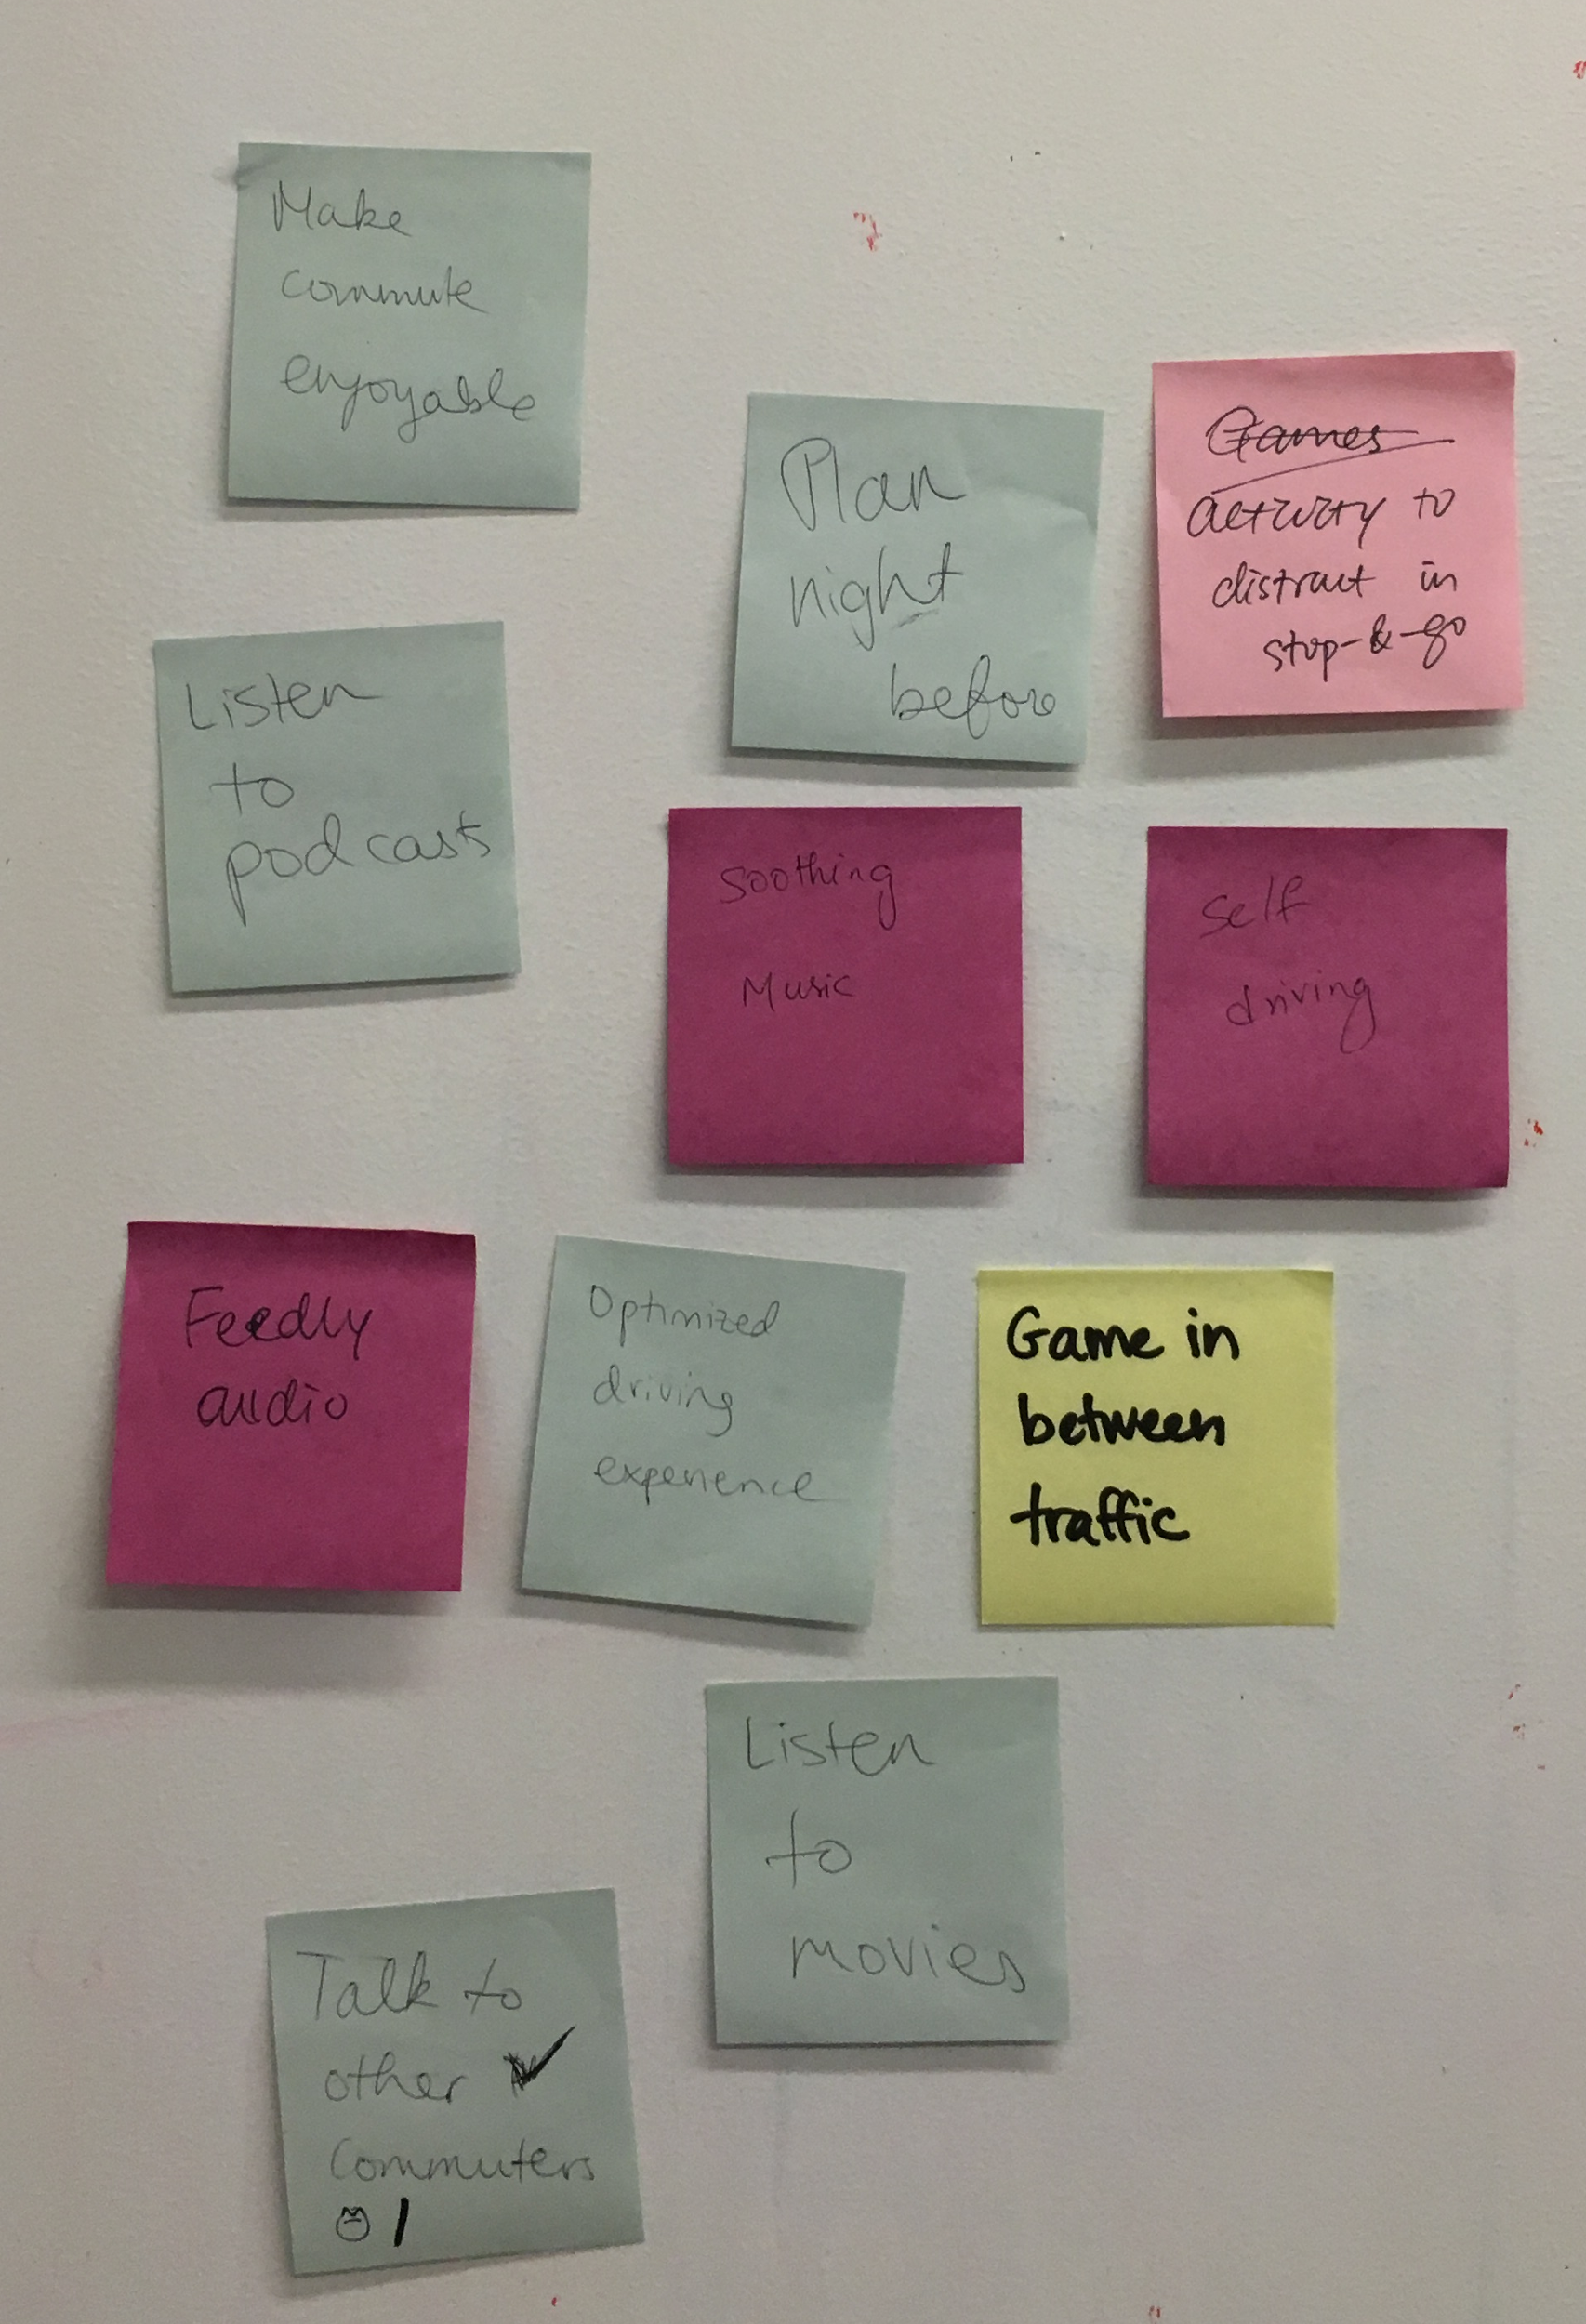 Make
commute
enjoyable
Plan
night
before
Games
activity to
distract in
stop-&-go
Listen
to
podcasts
Soothing
Music
Self
driving
Feedly
audio
Optimized
driving
experience
Game in
between
traffic
Listen
to
movies
Talk to
other
Commuters